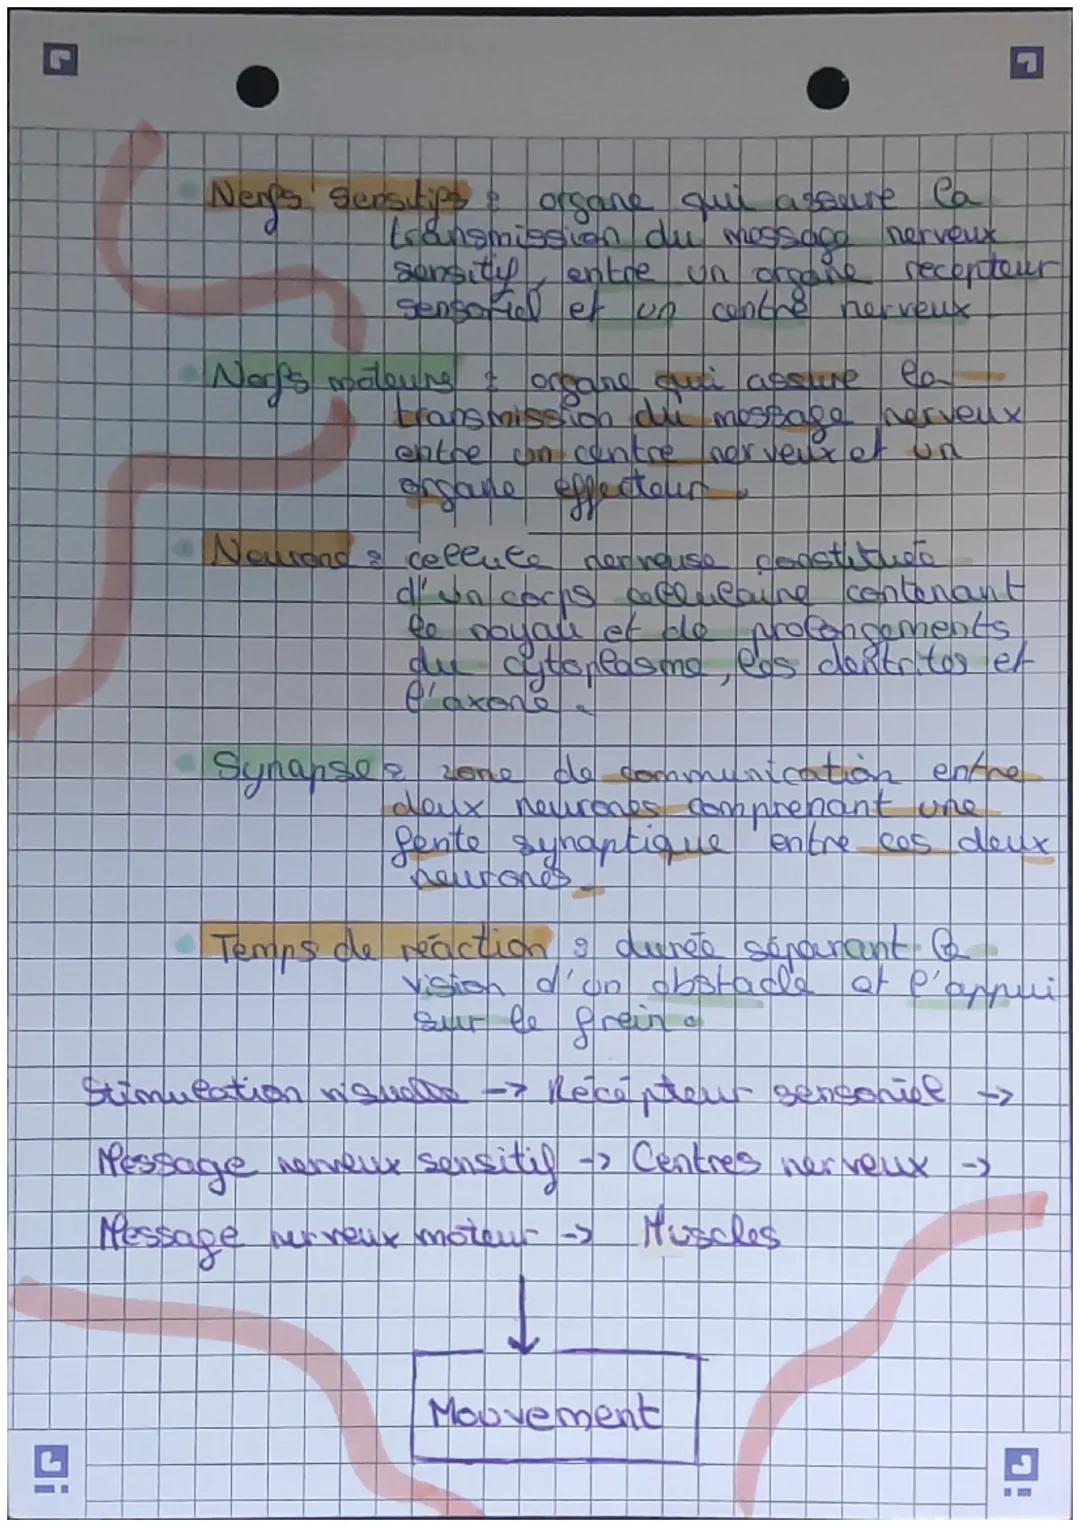 Nerfs sensitifs : organe qui assure la
transmission du message nerveux
sensitif, entre un organe recepteur
sensoriel et un centre nerveux
Nerfs moteurs : organe qui assure la
transmission du message nerveux
entre un centre nerveux et un
organe effecteur.
Neurone : cellule nerveuse constituée
d'un corps cellulaire contenant
le noyau et de prolongements
du cytoplasme, les dentrites et
l'axone.
Synapse : zone de communication entre
deux neurones comprenant une
fente synaptique entre ces deux
neurones.
Temps de réaction : durée séparant la
vision d'un obstacle et l'appui
sur le frein.
Stimulation visuelle -> Récépteur sensoriel ->
Message nerveux sensitif -> Centres nerveux ->
Message nerveux moteur -> Muscles
Mouvement